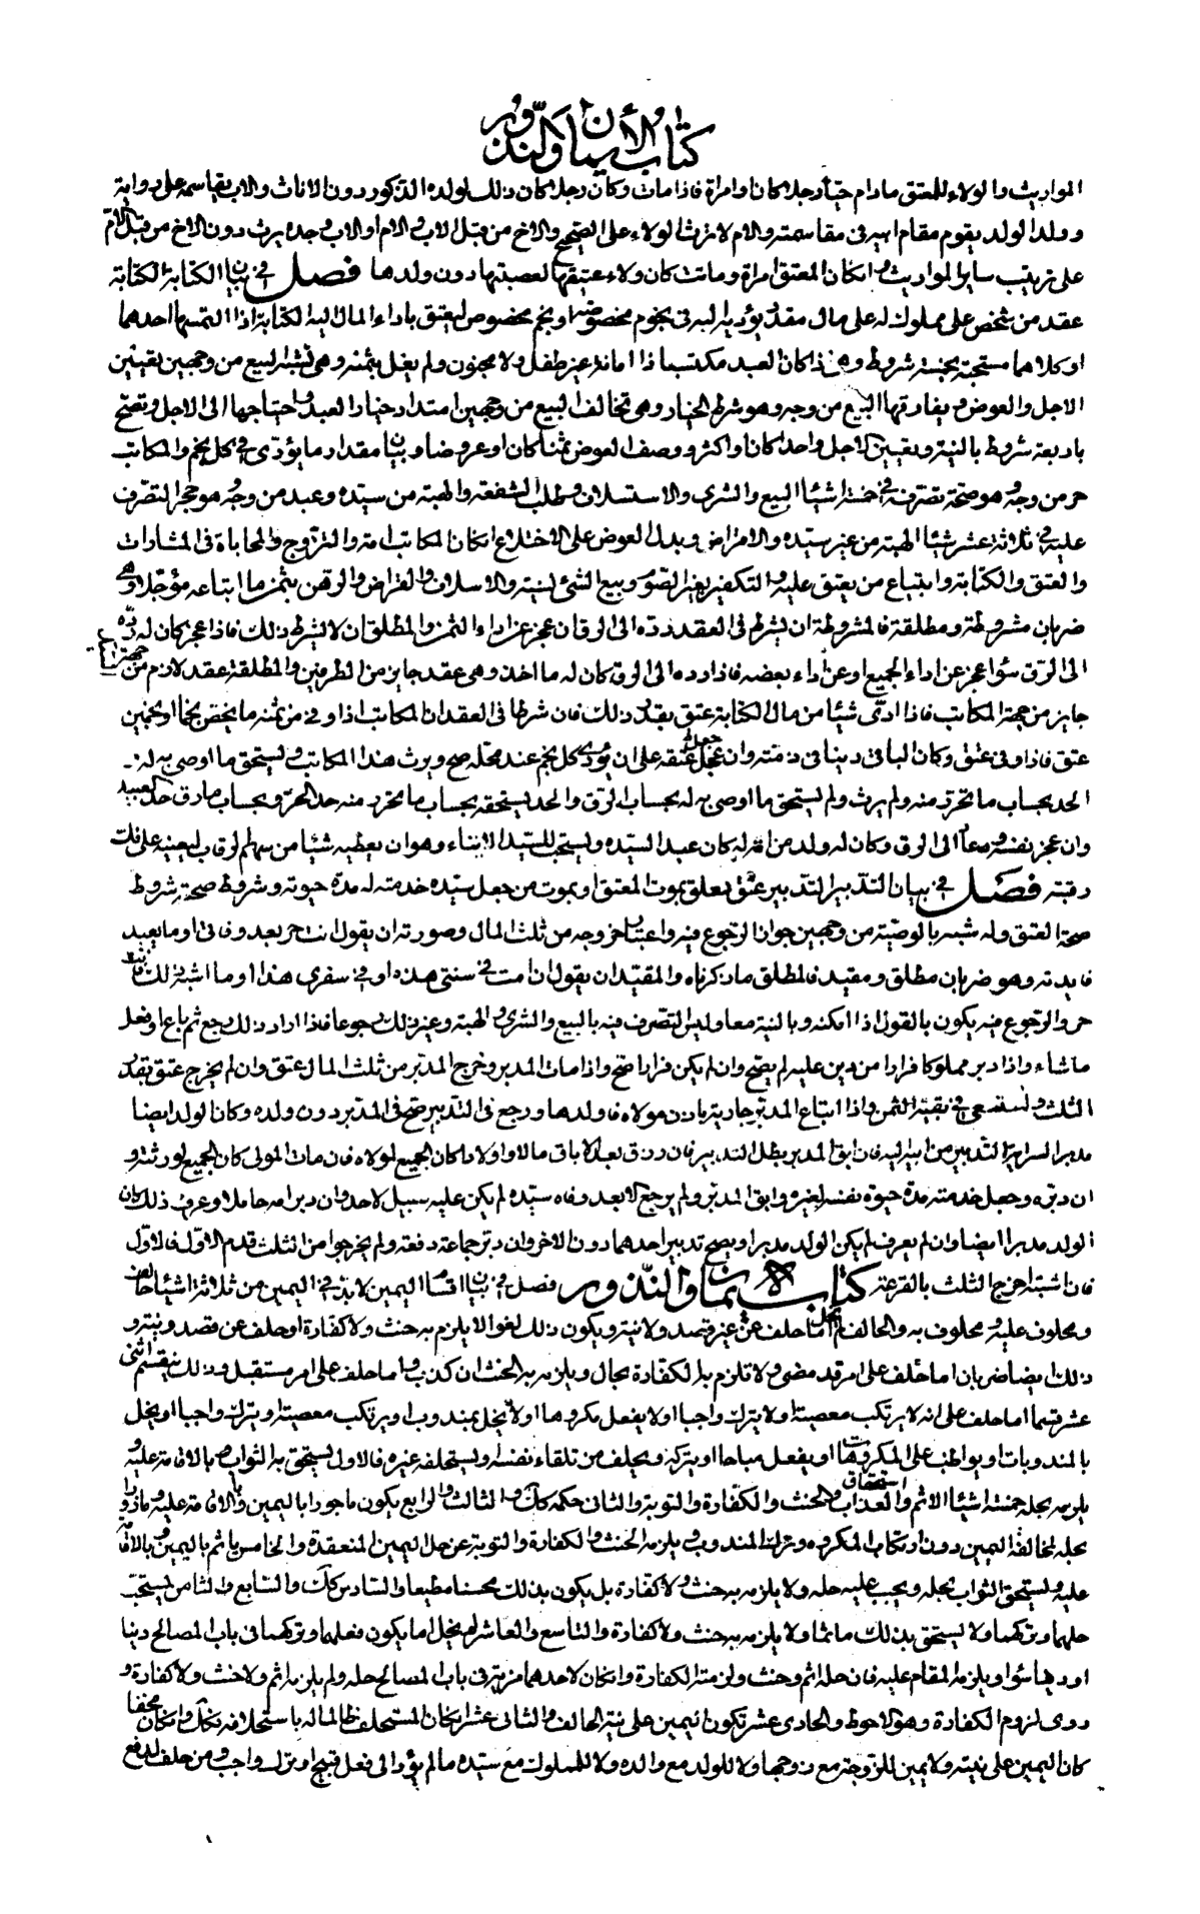 كتاب الأيمان والنذور
المواريث والولاء للمعتق مادام حيا رجلا كان او امراة فاذا مات وكان رجلا كان ذلك لولده الذكور دون الاناث والاب يقاسمه على رواية
وولد الولد يقوم مقام ابيه في مقاسمته والام لا ترث الولاء على الصحيح والاخ من قبل الاب والام او الاب وجده يرث دون الاخ من قبل الام
على ترتيب ساير المواريث وان كان المعتق امراة وماتت كان ولاء عتيقها لعصبتها دون ولدها فصل في بيان الكتابة الكتابة
عقد من شخص على مملوك له على مال مقدر يؤديه اليه في نجوم مخصوصة او نجم مخصوص ليعتق باداء المال اليه الكتابة اذا التمسها احدهما
او كلاهما مستحبة بخمسة شروط وهي اذا كان العبد مكتسبا ذا امانة غير طفل ولا مجنون ولم يغل بثمنه وهي تشبه البيع من وجهين بتعيين
الاجل والعوض ويفارقها البيع من وجه وهو شرط الخيار وهي تخالف البيع من وجهين امتداد خيار العبد واحتياجها الى الاجل وتصح
باربعة شروط بالنية وتعيين الاجل واحدا كان او اكثر ووصف العوض ثمنا كان او عروضا وبيان مقدار ما يؤدى في كل نجم والمكاتب
حر من وجه وهو صحة تصرفه في خمسة اشياء البيع والشرى والاستسلاف وطلب الشفعة والهبة من سيده وعبد من وجه وهو حجر التصرف
عليه في ثلاثة عشر شيئا الهبة من غير سيده والاقراض وبذل العوض على الاختلاع ان كان المكاتب امة والتزوج والمحاباة في المشارات
والعتق والكتابة وابتياع من يعتق عليه والتكفير بغير الصوم وبيع الشئ نسية والاسلاف والقراض والرهن بثمن ما ابتاعه مؤجلا وهي
ضربان مشروطة ومطلقة فالمشروطة ان يشرط في العقد رده الى الرق ان عجز عن اداء الثمن والمطلق ان لا يشرط ذلك فاذا عجز كان له رده
الى الرق سواء عجز عن اداء الجميع او عن اداء بعضه فاذا رده الى الرق كان له ما اخذ وهي عقد جايز من الطرفين والمطلقة عقد لازم من جهة السيد
جايز من جهة المكاتب فاذا ادى شيئا من مال الكتابة عتق بقدر ذلك فان شرطا في العقد ان المكاتب اذا وفى من ثمنه ما يخص نجما او نجمين
عتق فاذا وفى عتق وكان الباقي دينا في ذمته وان جعل عتقه على ان يؤدى كل نجم عند محله صح ويرث هذا المكاتب ويستحق ما اوصى به له
الحد بحساب ما تحرر منه ولم يرث ولم يستحق ما اوصى به له بحساب الرق والحد يستحقه بحساب ما تحرر منه حد الحر وبحساب ما رق حد العبيد
وان عجز بنفسه رد معا الى الرق وكان له ولد من امته كان عبد السيده ويستحب للسيد الايتاء وهو ان يعطيه شيئا من سهم الرقاب ليعينه على فك
رقبته فصل في بيان التدبير التدبير عتق يعلق بموت المعتق او بموت من جعل سيده خدمته له مدة حيوته وشروط صحته شروط
صحة العتق وله شبه بالوصية من وجهين جواز الرجوع فيه واعتبار خروجه من ثلث المال وصورته ان يقول انت حر بعد وفاتي او ما يفيد
فايدته وهو ضربان مطلق ومقيد فالمطلق ما ذكرناه والمقيد ان يقول ان مت في سنتي هذه او في سفري هذا او ما اشبه ذلك فانت
حر والرجوع فيه يكون بالقول اذا امكنه وبالنية معا وليس التصرف فيه بالبيع والشرى والهبة وغير ذلك رجوعا فاذا اراد ذلك رجع ثم باع او فعل
ما شاء واذا دبر مملوكا فرارا من دين عليه لم يصح وان لم يكن فرارا صح واذا مات المدبر وخرج المدبر من ثلث المال عتق وان لم يخرج عتق بقدر
الثلث واستسعى في بقية الثمن واذا ابتاع المدبر جارية باذن مولاه فاولدها ورجع في التدبير صح في المدبر دون ولده وكان الولد ايضا
مدبرا لسراية التدبير من ابيه اليه فان ابق المدبر بطل التدبير فان رزق بعد الاباق مالا واولادا كان الجميع لمولاه فان مات المولى كان الجميع لورثته و
ان دبره وجعل خدمته مدة حيوة نفسه لغيره وابق المدبر ولم يرجع الا بعد وفاة سيده لم يكن عليه سبيل لاحد وان دبر امه حاملا وعرف ذلك كان
الولد مدبرا ايضا وان لم يعرف لم يكن الولد مدبرا ويصح تدبير احدهما دون الاخر وان دبر جماعة دفعة ولم يخرجوا من الثلث قدم الاول فالاول
فان اشتبه اخرج الثلث بالقرعة كتاب الايمان والنذور فصل في بيان اقسام اليمين لا بد في اليمين من ثلاثة اشياء حالف
ومحلوف عليه ومحلوف به والحالف لم يخل اما حلف عن غير قصد ولا نية ويكون ذلك لغوا لا يلزم به حنث ولا كفارة او حلف عن قصد ونية و
ذلك ايضا ضربان اما حلف على امر قد مضى ولا تلزم به الكفارة بحال ويلزمه به الحنث ان كذب واما حلف على امر مستقبل وذلك ينقسم اثنى
عشر قسما اما حلف على انه لا يرتكب معصية او لا يترك واجبا او لا يفعل مكروها او لا يخل بمندوب او يرتكب معصية او يترك واجبا او يخل
بالمندوبات او يواظب على المكروهات او يفعل مباحا او يتركه ويحلف من تلقاء نفسه او يستحلفه غيره فالاول يستحق به الثواب بالاقامة عليه و
يلزمه بحله خمسة اشياء الاثم واستحقاق العذاب والحنث والكفارة والتوبة والثاني حكمه كذلك والثالث والرابع يكون ماجورا باليمين وبالاقامة عليه وماذورا
بحله لمخالفة اليمين دون ارتكاب المكروه وترك المندوب ويلزمه الحنث والكفارة والتوبة عن حل اليمين المنعقدة والخامس ياثم باليمين وبالاقامة
عليه ويستحق الثواب بحله ويجب عليه حله ولا يلزمه به حنث ولا كفارة بل يكون بذلك محسنا مطيعا والسادس كذلك والسابع والثامن يستحب
حلهما وتركهما ولا يستحق بذلك ماثما ولا يلزمه به حنث ولا كفارة والتاسع والعاشر لم يخل اما يكون فعلهما وتركهما في باب المصالح دينا
او دنيا سواء ويلزمه المقام عليه فان حله اثم وحنث ولزمته الكفارة وان كان لاحدهما مزية في باب المصالح حله ولم يلزمه اثم ولا حنث ولا كفارة و
روى لزوم الكفارة وهو الاحوط والحادي عشر تكون اليمين على نية الحالف والثاني عشر ان كان المستحلف ظالما له باستحلافه فكذلك وان كان محقا
كان اليمين على نيته ولا يمين للزوجة مع زوجها ولا للولد مع والده ولا للمملوك مع سيده ما لم يؤد الى فعل قبيح او ترك واجب ومن حلف لدفع